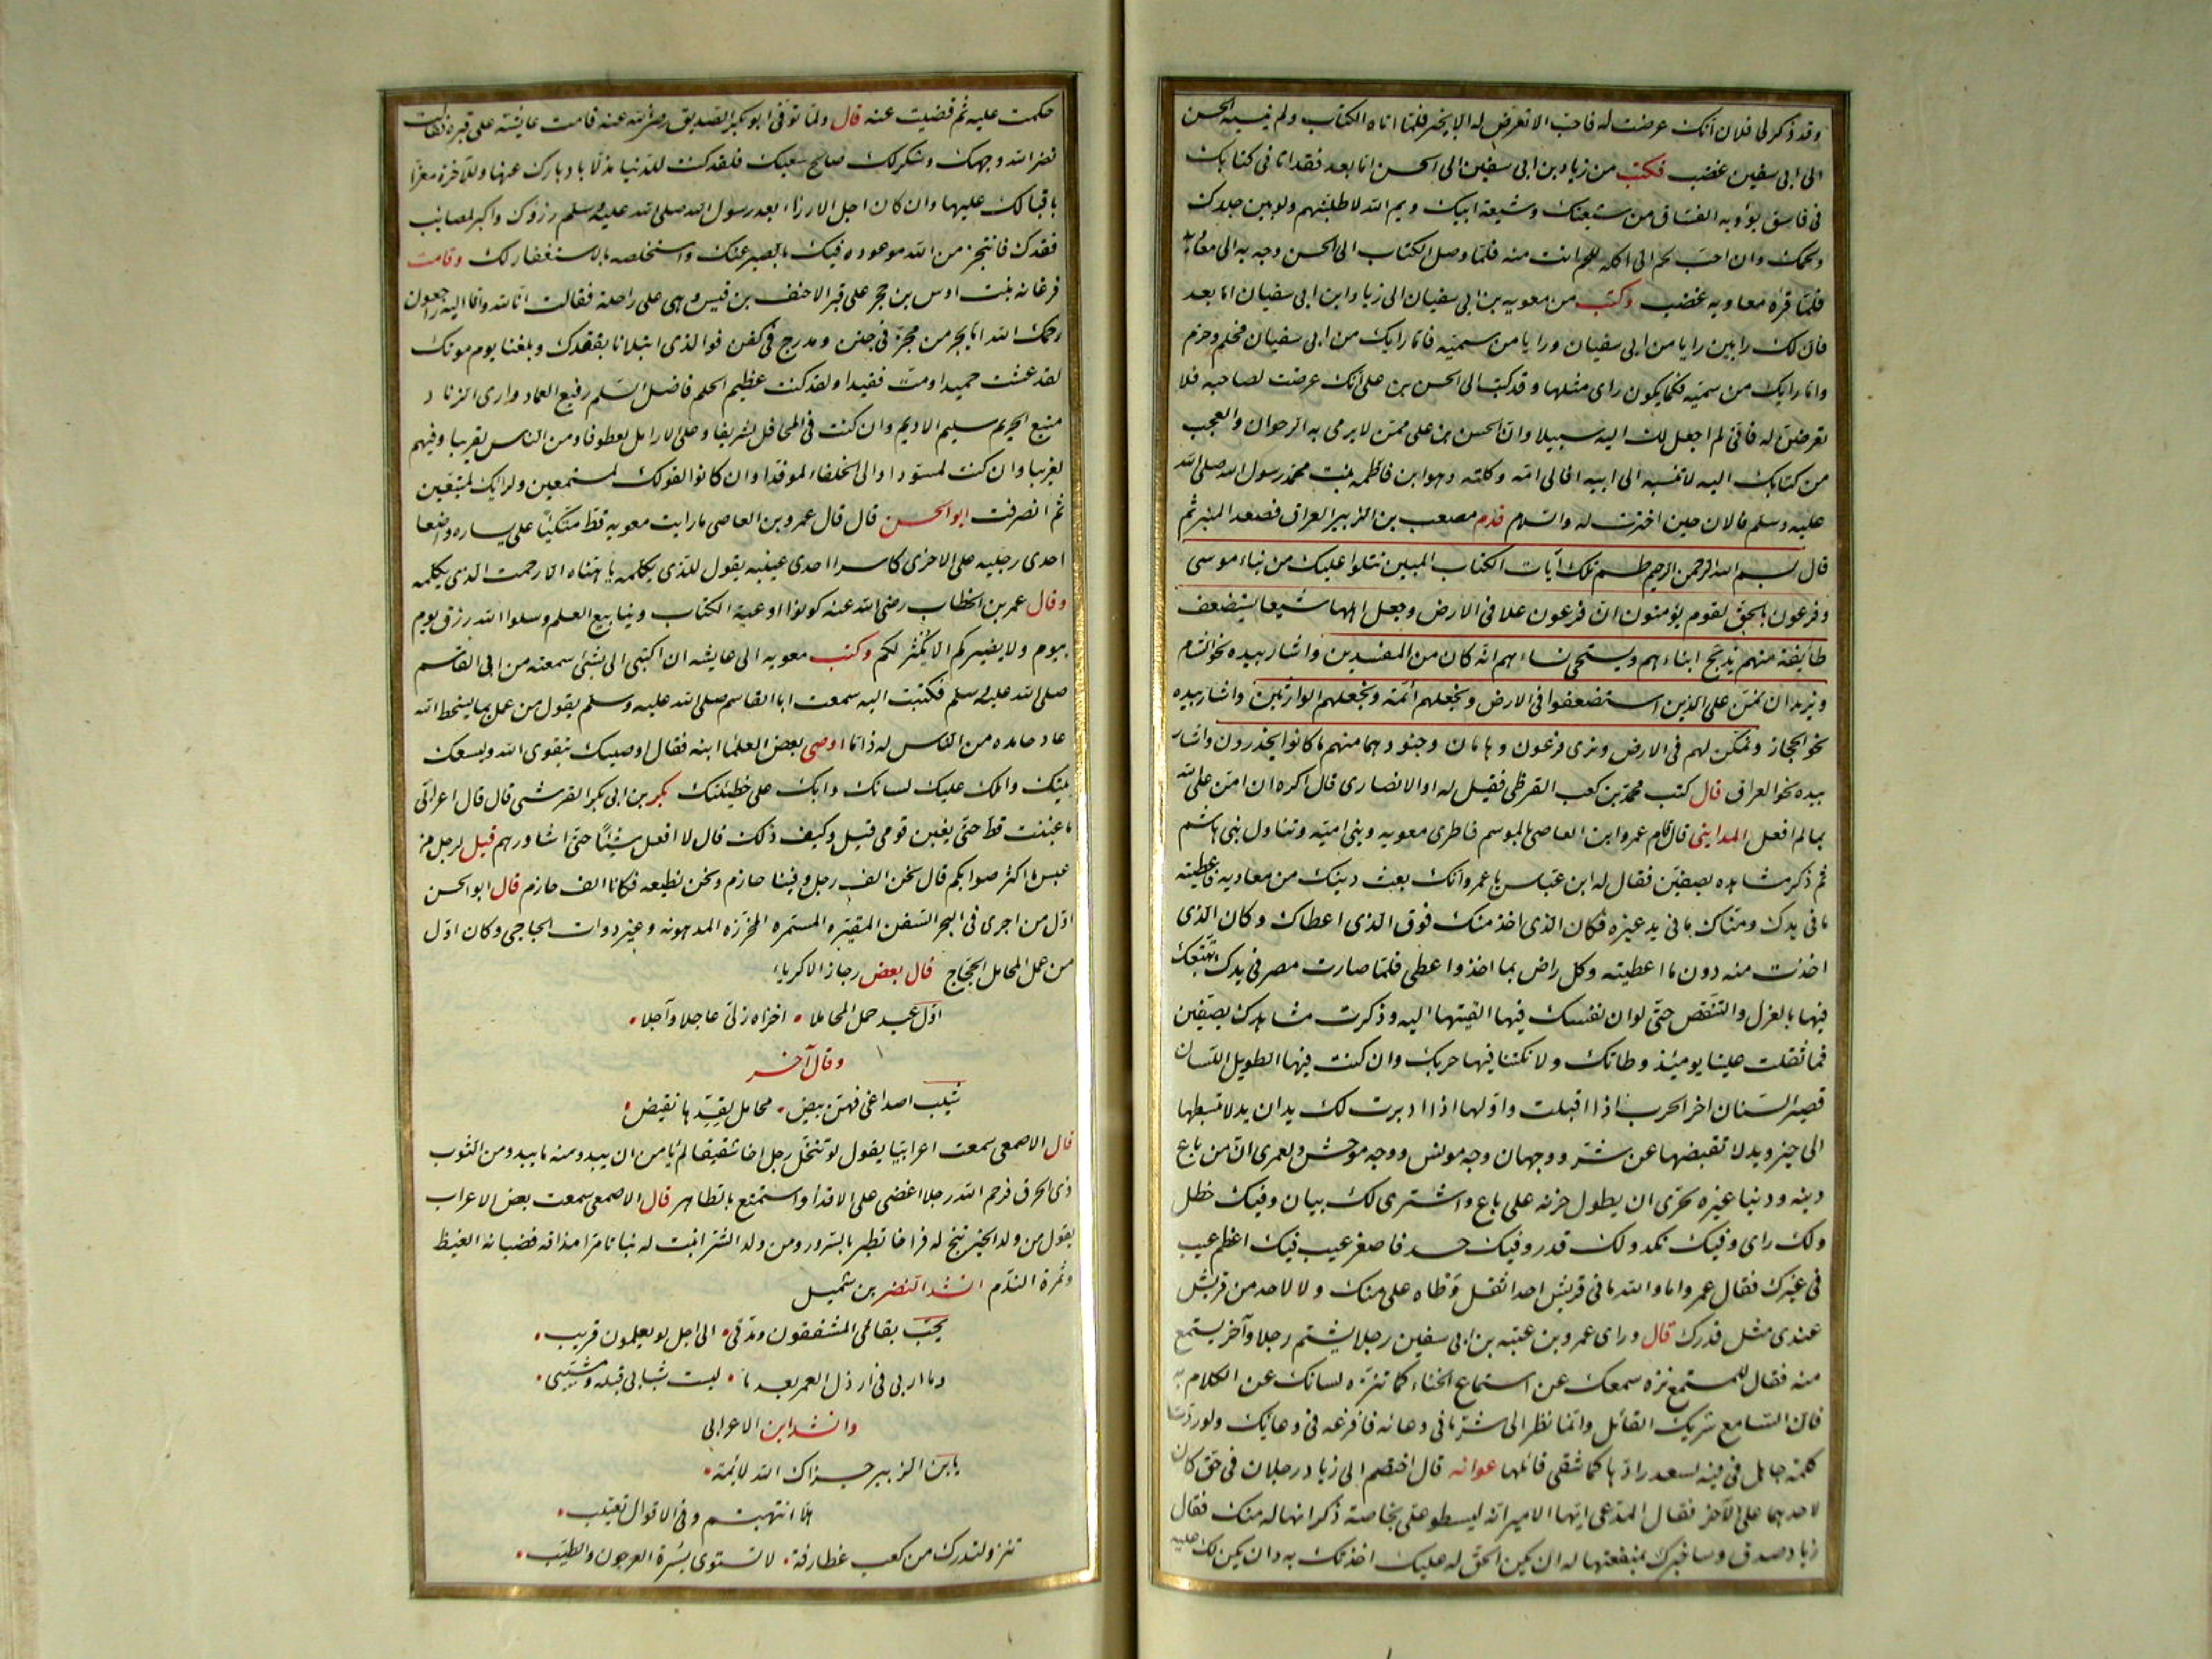 وقد ذكر لى فلان انك عرضت له فاحب الا تعرض له الا بخير فلما اتاه الكتاب ولم ينسبه الحسن
الى ابى سفين غضب فكتب من زياد بن ابى سفين الى الحسن اما بعد فقد اتانى كتابك
فى فاسق يؤويه الفساق من شيعتك وشيعة ابيك ويم الله لاطلبنهم ولو بين جلدك
ولحمك وان احب لحم الى اكله للحم انت منه فلما وصل الكتاب الى الحسن وجه به الى معاويه
فلما قراه معاويه غضب وكتب من معويه بن ابى سفيان الى زياد ابن ابى سفيان اما بعد
فان لك رايين رايا من ابى سفيان ورايا من سميه فاما رايك من ابى سفيان فحلم وحزم
واما رايك من سميه فكما يكون راى مثلها وقد كتب الى الحسن بن على انك عرضت لصاحبه فلا
تعرضن له فانى لم اجعل لك اليه سبيلا وان الحسن بن على ممن لا يرمى به الرجوان والعجب
من كتابك اليه لا تنسبه الى ابيه افالى امه وكلته وهو ابن فاطمه بنت محمد رسول الله صلى الله
عليه وسلم فالان حين اخترت له والسلام قدم مصعب بن الزبير العراق فصعد المنبر ثم
قال بسم الله الرحمن الرحيم طسم تلك آيات الكتاب المبين نتلوا عليك من نباء موسى
وفرعون بالحق لقوم يؤمنون ان فرعون علا فى الارض وجعل اهلها شيعا يستضعف
طايفة منهم يذبح ابناءهم ويستحى نساءهم انه كان من المفسدين واشار بيده نحو الشام
ونريد ان نمن على الذين استضعفوا فى الارض ونجعلهم ائمة ونجعلهم الوارثين واشار بيده
نحو الحجاز ونمكن لهم فى الارض ونرى فرعون وهامان وجنودهما منهم ما كانوا يحذرون واشار
بيده نحو العراق قال كتب محمد بن كعب القرظى فقيل له او الانصارى قال اكره ان امن على الله
بما لم افعل المداينى قال قام عمرو ابن العاصى بالموسم فاطرى معويه وبنى اميه وتناول بنى هاشم
ثم ذكر مشاهده بصفين فقال له ابن عباس يا عمرو انك بعت دينك من معاويه فاعطيته
ما فى يدك ومناك ما فى يد غيره فكان الذى اخذ منك فوق الذى اعطاك وكان الذى
اخذت منه دون ما اعطيته وكل راض بما اخذ واعطى فلما صارت مصر فى يدك تتبعك
فيها بالعزل والتنقص حتى لو ان نفسك فيها القيتها اليه وذكرت مشاهدك بصفين
فما ثقلت علينا يومئذ وطاتك ولا نكتنا فيها حربك وان كنت فيها الطويل اللسان
قصير السنان اخر الحرب اذا اقبلت واولها اذا ادبرت لك يدان يد لا تبسطها
الى خير ويد لا تقبضها عن شر ووجهان وجه مونس ووجه موحش ولعمرى ان من باع
دينه ودنيا غيره لحرى ان يطول حزنه على باع واشترى لك بيان وفيك خطل
ولك راى وفيك نكد ولك قدر وفيك حسد فاصغر عيب فيك اعظم عيب
فى غيرك فقال عمرو اما والله ما فى قريش احد اثقل وطاه على منك ولا لاحد من قريش
عندى مثل قدرك قال وراى عمرو بن عتبه بن ابى سفين رجلا يشتم رجلا وآخر يستمع
منه فقال للمستمع نزه سمعك عن استماع الخناء كما تنزه لسانك عن الكلام به
فان السامع شريك القائل وانما نظر الى شر ما فى وعائه فافرغه فى وعائك ولو ردت
كلمة جاهل فى فيه لسعد رادها كما شقى قائلها عوانه قال اختصم الى زياد رجلان فى حق كان
لاحدهما على الآخر فقال المدعى ايها الامير انه ليسطو على بخاصة ذكر انها له منك فقال
زياد صدق وساخبرك بمنفعتها له ان يكن الحق له عليك اخذتك به وان يكن لك عليه
حكمت عليه ثم قضيت عنه قال ولما توفى ابو بكر الصديق رضى الله عنه قامت عايشه على قبره فقالت
نضر الله وجهك وشكر لك صالح سعيك فلقد كنت للدنيا مذلا بادبارك عنها وللآخرة معزا
باقبالك عليها وان كان اجل الارزاء بعد رسول الله صلى الله عليه وسلم رزؤك واكبر لمصائب
فقدك فانتجز من الله موعوده فيك بالصبر عنك واستخلصه بالاستغفار لك وقامت
فرغانه بنت اوس بن حجر على قبر الاحنف بن قيس وهى على راحلة فقالت انا لله وانا اليه راجعون
رحمك الله ابا بحر من مجن فى جنن ومدرج فى كفن فوالذى ابتلانا بفقدك وبلغنا يوم موتك
لقد عشت حميدا ومت فقيدا ولقد كنت عظيم الحلم فاضل السلم رفيع العماد وارى الزناد
منيع الحريم سليم الاديم وان كنت فى المحافل لشريفا وعلى الارامل لعطوفا ومن الناس لقريبا وفيهم
لغريبا وان كنت لمسودا والى الخلفاء لموفدا وان كانوا لقولك لمستمعين ولرايك لمتبعين
ثم انصرفت ابو الحسن قال قال عمرو بن العاصى ما رايت معويه قط متكيا على يساره واضعا
احدى رجليه على الاخرى كاسرا احدى عينيه يقول للذى يكلمه يا هناه الا رحمت الذى يكلمه
وقال عمر بن الخطاب رضى الله عنه كونوا اوعية الكتاب وينابيع العلم وسلوا الله رزق يوم
بيوم ولا يضيركم الا يكثر لكم وكتب معويه الى عايشه ان اكتبى الى بشئ سمعته من ابى القاسم
صلى الله عليه وسلم فكتبت اليه سمعت ابا القاسم صلى الله عليه وسلم يقول من عمل بما يسخط الله
عاد حامده من الناس له ذاما اوصى بعض العلما ابنه فقال اوصيك بتقوى الله وليسعك
بيتك واملك عليك لسانك وابك على خطيئتك بكر بن ابى بكر القرشى قال قال اعرابى
ما غبنت قط حتى يغبن قومى قيل وكيف ذلك قال لا افعل شيئا حتى اشاورهم قيل لرجل من
عبس ما اكثر صوابكم قال نحن الف رجل وفينا حازم ونحن نطيعه فكانا الف حازم قال ابو الحسن
اول من اجرى فى البحر السفن المقيره المسمره المخرزه المدهونه وغير ذوات الجاجى وكان اول
من عمل المحامل الحجاج قال بعض رجاز الاكرياء
اول عبد عمل المحاملا • اخزاه ربى عاجلا وآجلا •
وقال آخر
شيب اصداغى فهن بيض • محامل لقيدها نقيض •
قال الاصمعى سمعت اعرابيا يقول لو تنخل رجل اخا شقيقا لم يامن ان يبدو منه ما يبدو من الثوب
ذى الحرق فرحم الله رجلا اغضى على الاقذا واستمتع بالظاهر قال الاصمعى سمعت بعض الاعراب
يقول من ولد الخير نتج له فراخا تطير بالسرور ومن ولد الشر انبت له نباتا مرا مذاقه قضبانه الغيظ
وثمرة الندم انشد النضر بن شميل
يحب بقائى المشفقون ومدتى • الى اجل لو يعلمون قريب •
وما اربى فى ارذل العمر بعدما • لبست شبابى قبله ومشيبى •
وانشد ابن الاعرابى
يا بن الزبير جزاك الله لائمة •
هلا انتهيتم وفى الاقوال تعتيب •
تنزو لتدرك من كعب غطارفة • لا تستوى بسرة العرجون والطيب •